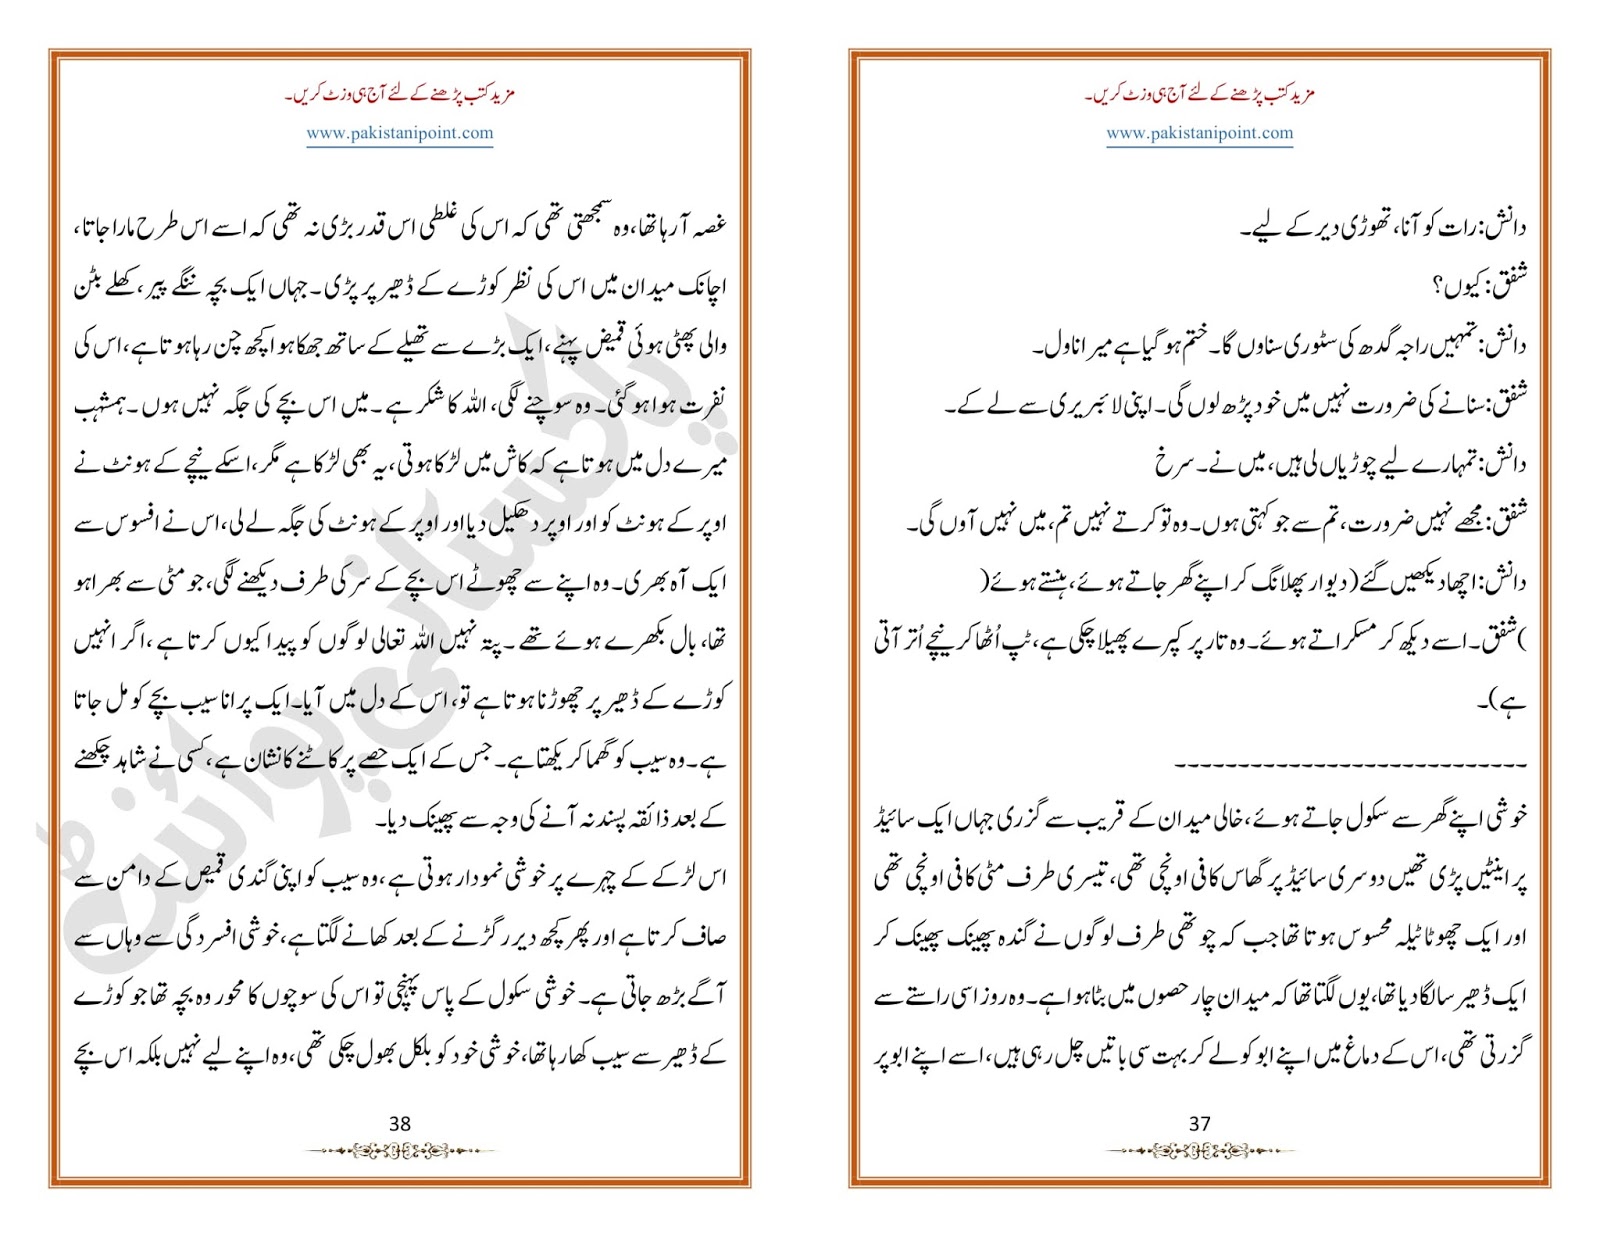 مزید کتب پڑھنے کے لئے آج ہی وزٹ کریں۔
www.pakistanipoint.com
دانش: رات کو آنا، تھوڑی دیر کے لیے۔
شفق: کیوں؟
دانش: تمہیں راجہ گدھ کی سٹوری سناوں گا۔ ختم ہو گیا ہے میرا ناول۔
شفق: سنانے کی ضرورت نہیں میں خود پڑھ لوں گی۔ اپنی لائبریری سے لے کے۔
دانش: تمہارے لیے چوڑیاں لی ہیں، میں نے۔ سرخ
شفق: مجھے نہیں ضرورت، تم سے جو کہتی ہوں۔ وہ تو کرتے نہیں تم، میں نہیں آوں گی۔
دانش: اچھا دیکھیں گئے (دیوار پھلانگ کر اپنے گھر جاتے ہوئے، ہنستے ہوئے(
)شفق۔ اسے دیکھ کر مسکراتے ہوئے۔ وہ تار پر کپرے پھیلا چکی ہے، ٹپ اُٹھا کر نیچے اُتر آتی
ہے)۔
----------------------------
خوشی اپنے گھر سے سکول جاتے ہوئے، خالی میدان کے قریب سے گزری جہاں ایک سائیڈ
پر اینٹیں پڑی تھیں دوسری سائیڈ پر گھاس کافی اونچی تھی، تیسری طرف مٹی کافی اونچی تھی
اور ایک چھوٹا ٹیلہ محسوس ہوتا تھا جب کہ چوتھی طرف لوگوں نے گندہ پھینک پھینک کر
ایک ڈھیر سا لگا دیا تھا، یوں لگتا تھا کہ میدان چار حصوں میں بٹا ہوا ہے۔ وہ روز اسی راستے سے
گزرتی تھی، اس کے دماغ میں اپنے ابو کو لے کر بہت سی باتیں چل رہی ہیں، اسے اپنے ابو پر
37
مزید کتب پڑھنے کے لئے آج ہی وزٹ کریں۔
www.pakistanipoint.com
غصہ آرہا تھا، وہ سمجھتی تھی کہ اس کی غلطی اس قدر بڑی نہ تھی کہ اسے اس طرح مارا جاتا،
اچانک میدان میں اس کی نظر کوڑے کے ڈھیر پر پڑی۔ جہاں ایک بچہ ننگے پیر، کھلے بٹن
والی پھٹی ہوئی قمیض پہنے، ایک بڑے سے تھیلے کے ساتھ جھکا ہوا کچھ چن رہا ہوتا ہے، اس کی
نفرت ہوا ہو گئی۔ وہ سوچنے لگی، اللہ کا شکر ہے۔ میں اس بچے کی جگہ نہیں ہوں۔ ہمشہب
میرے دل میں ہوتا ہے کہ کاش میں لڑکا ہوتی، یہ بھی لڑکا ہے مگر، اسکے نیچے کے ہونٹ نے
اوپر کے ہونٹ کو اور اوپر دھکیل دیا اور اوپر کے ہونٹ کی جگہ لے لی، اس نے افسوس سے
ایک آہ بھری۔ وہ اپنے سے چھوٹے اس بچے کے سر کی طرف دیکھنے لگی، جو مٹی سے بھرا ہو
تھا، بال بکھرے ہوئے تھے۔ پتہ نہیں اللہ تعالی لوگوں کو پیدا کیوں کرتا ہے، اگر انہیں
کوڑے کے ڈھیر پر چھوڑنا ہوتا ہے تو، اس کے دل میں آیا۔ ایک پرانا سیب بچے کو مل جاتا
ہے۔ وہ سیب کو گھما کر یکھتا ہے۔ جس کے ایک حصے پر کاٹنے کا نشان ہے، کسی نے شاہد چکھنے
کے بعد ذائقہ پسند نہ آنے کی وجہ سے پھینک دیا۔
اس لڑکے کے چہرے پر خوشی نمودار ہوتی ہے، وہ سیب کو اپنی گندی قمیص کے دامن سے
صاف کرتا ہے اور پھر کچھ دیر رگڑنے کے بعد کھانے لگتا ہے، خوشی افسردگی سے وہاں سے
آگے بڑھ جاتی ہے۔ خوشی سکول کے پاس پہنچی تو اس کی سوچوں کا محور وہ بچہ تھا جو کوڑے
کے ڈھیر سے سیب کھا رہا تھا، خوشی خود کو بلکل بھول چکی تھی، وہ اپنے لیے نہیں بلکہ اس بچے
38
پاکستانی پوائنٹ